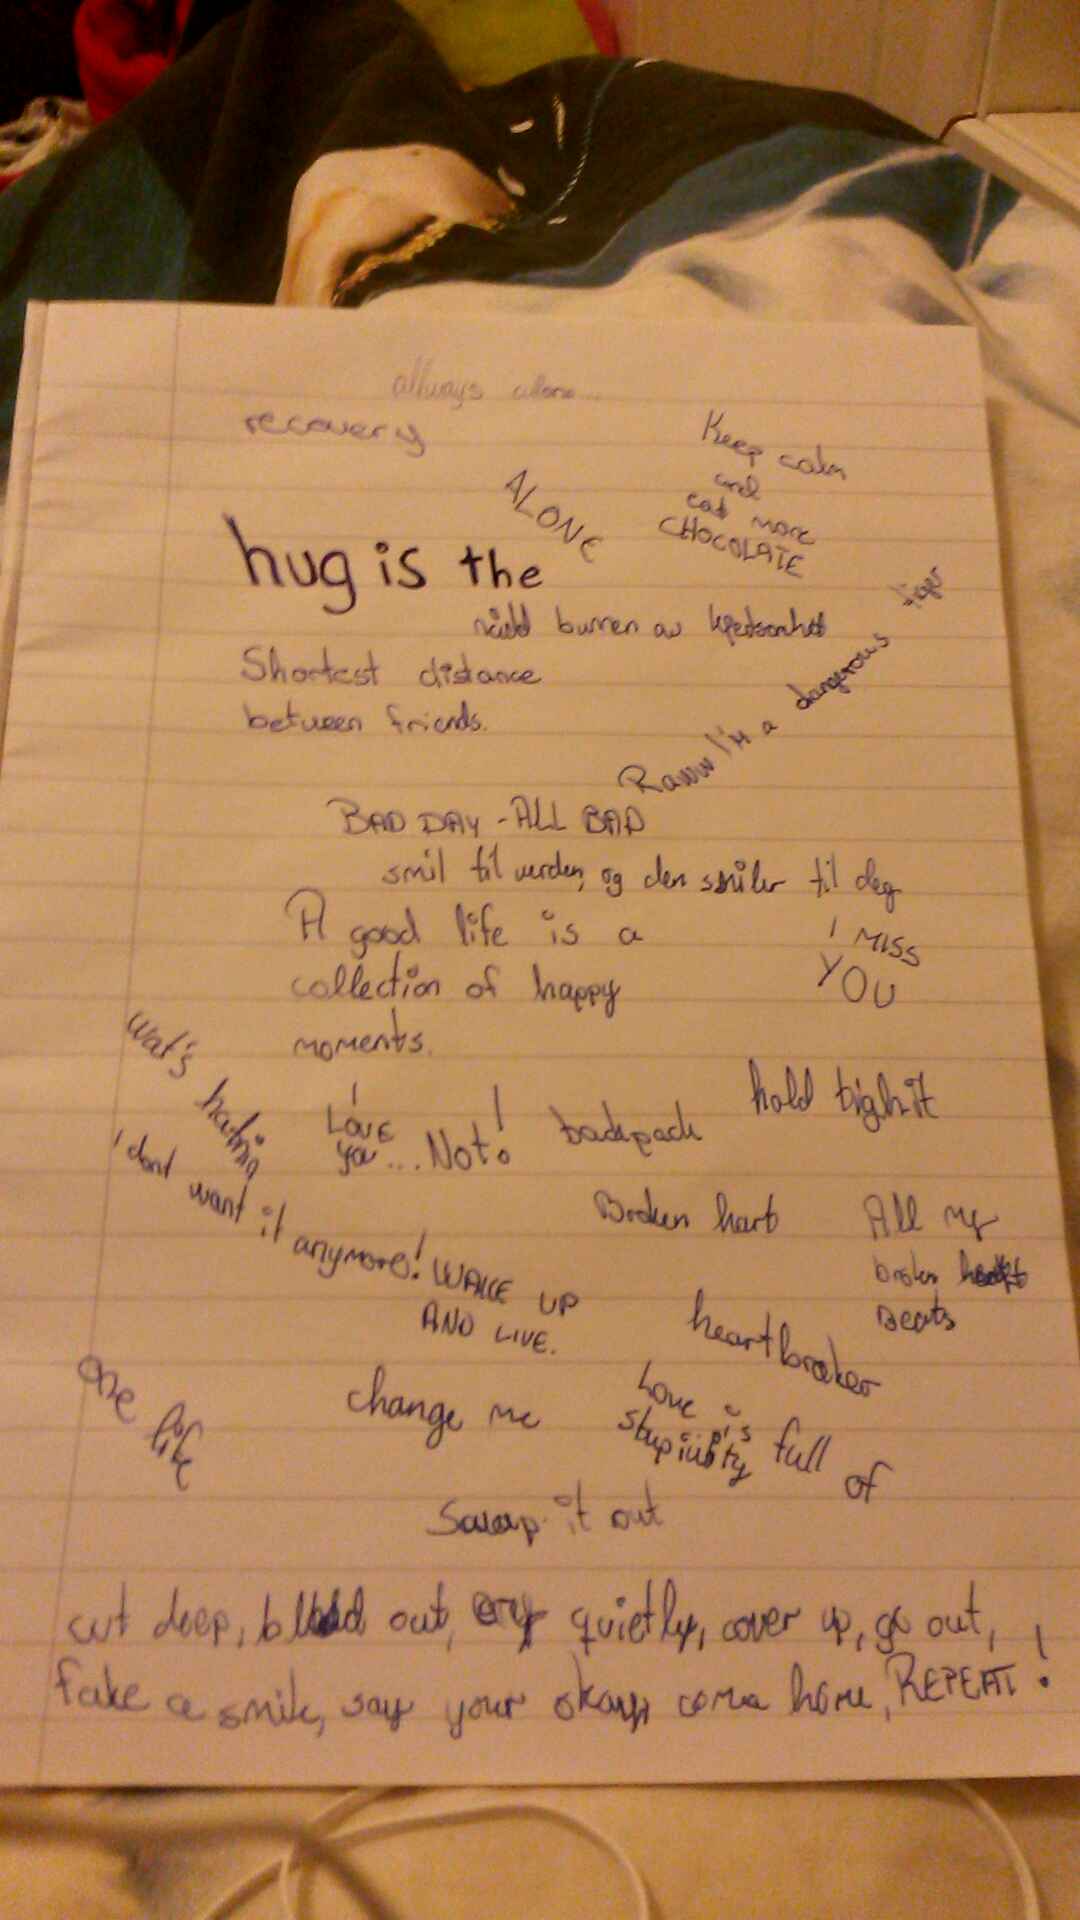 allways alone...
recovery
Keep calm
and
eat more
CHOCOLATE
ALONE
hug is the
burren av kjedsomhet
Shortest distance
between friends.
Raww I'm a dangerous tiger
BAD DAY - ALL BAD
smil til verden, og den smiler til deg
A good life is a
collection of happy
moments.
I MISS
YOU
wat's hating
I
LOVE
you... Not!
backpack
hold tighit
I dont want it anymore!
Broken hart
All my
broken
Beats
WAKE UP
AND LIVE.
heartbraker
one life
change me
Love is full of
stupidity
it out
cut deep, out, cry quietly, cover up, go out,
fake a smile, say your okay, come home, REPEAT!